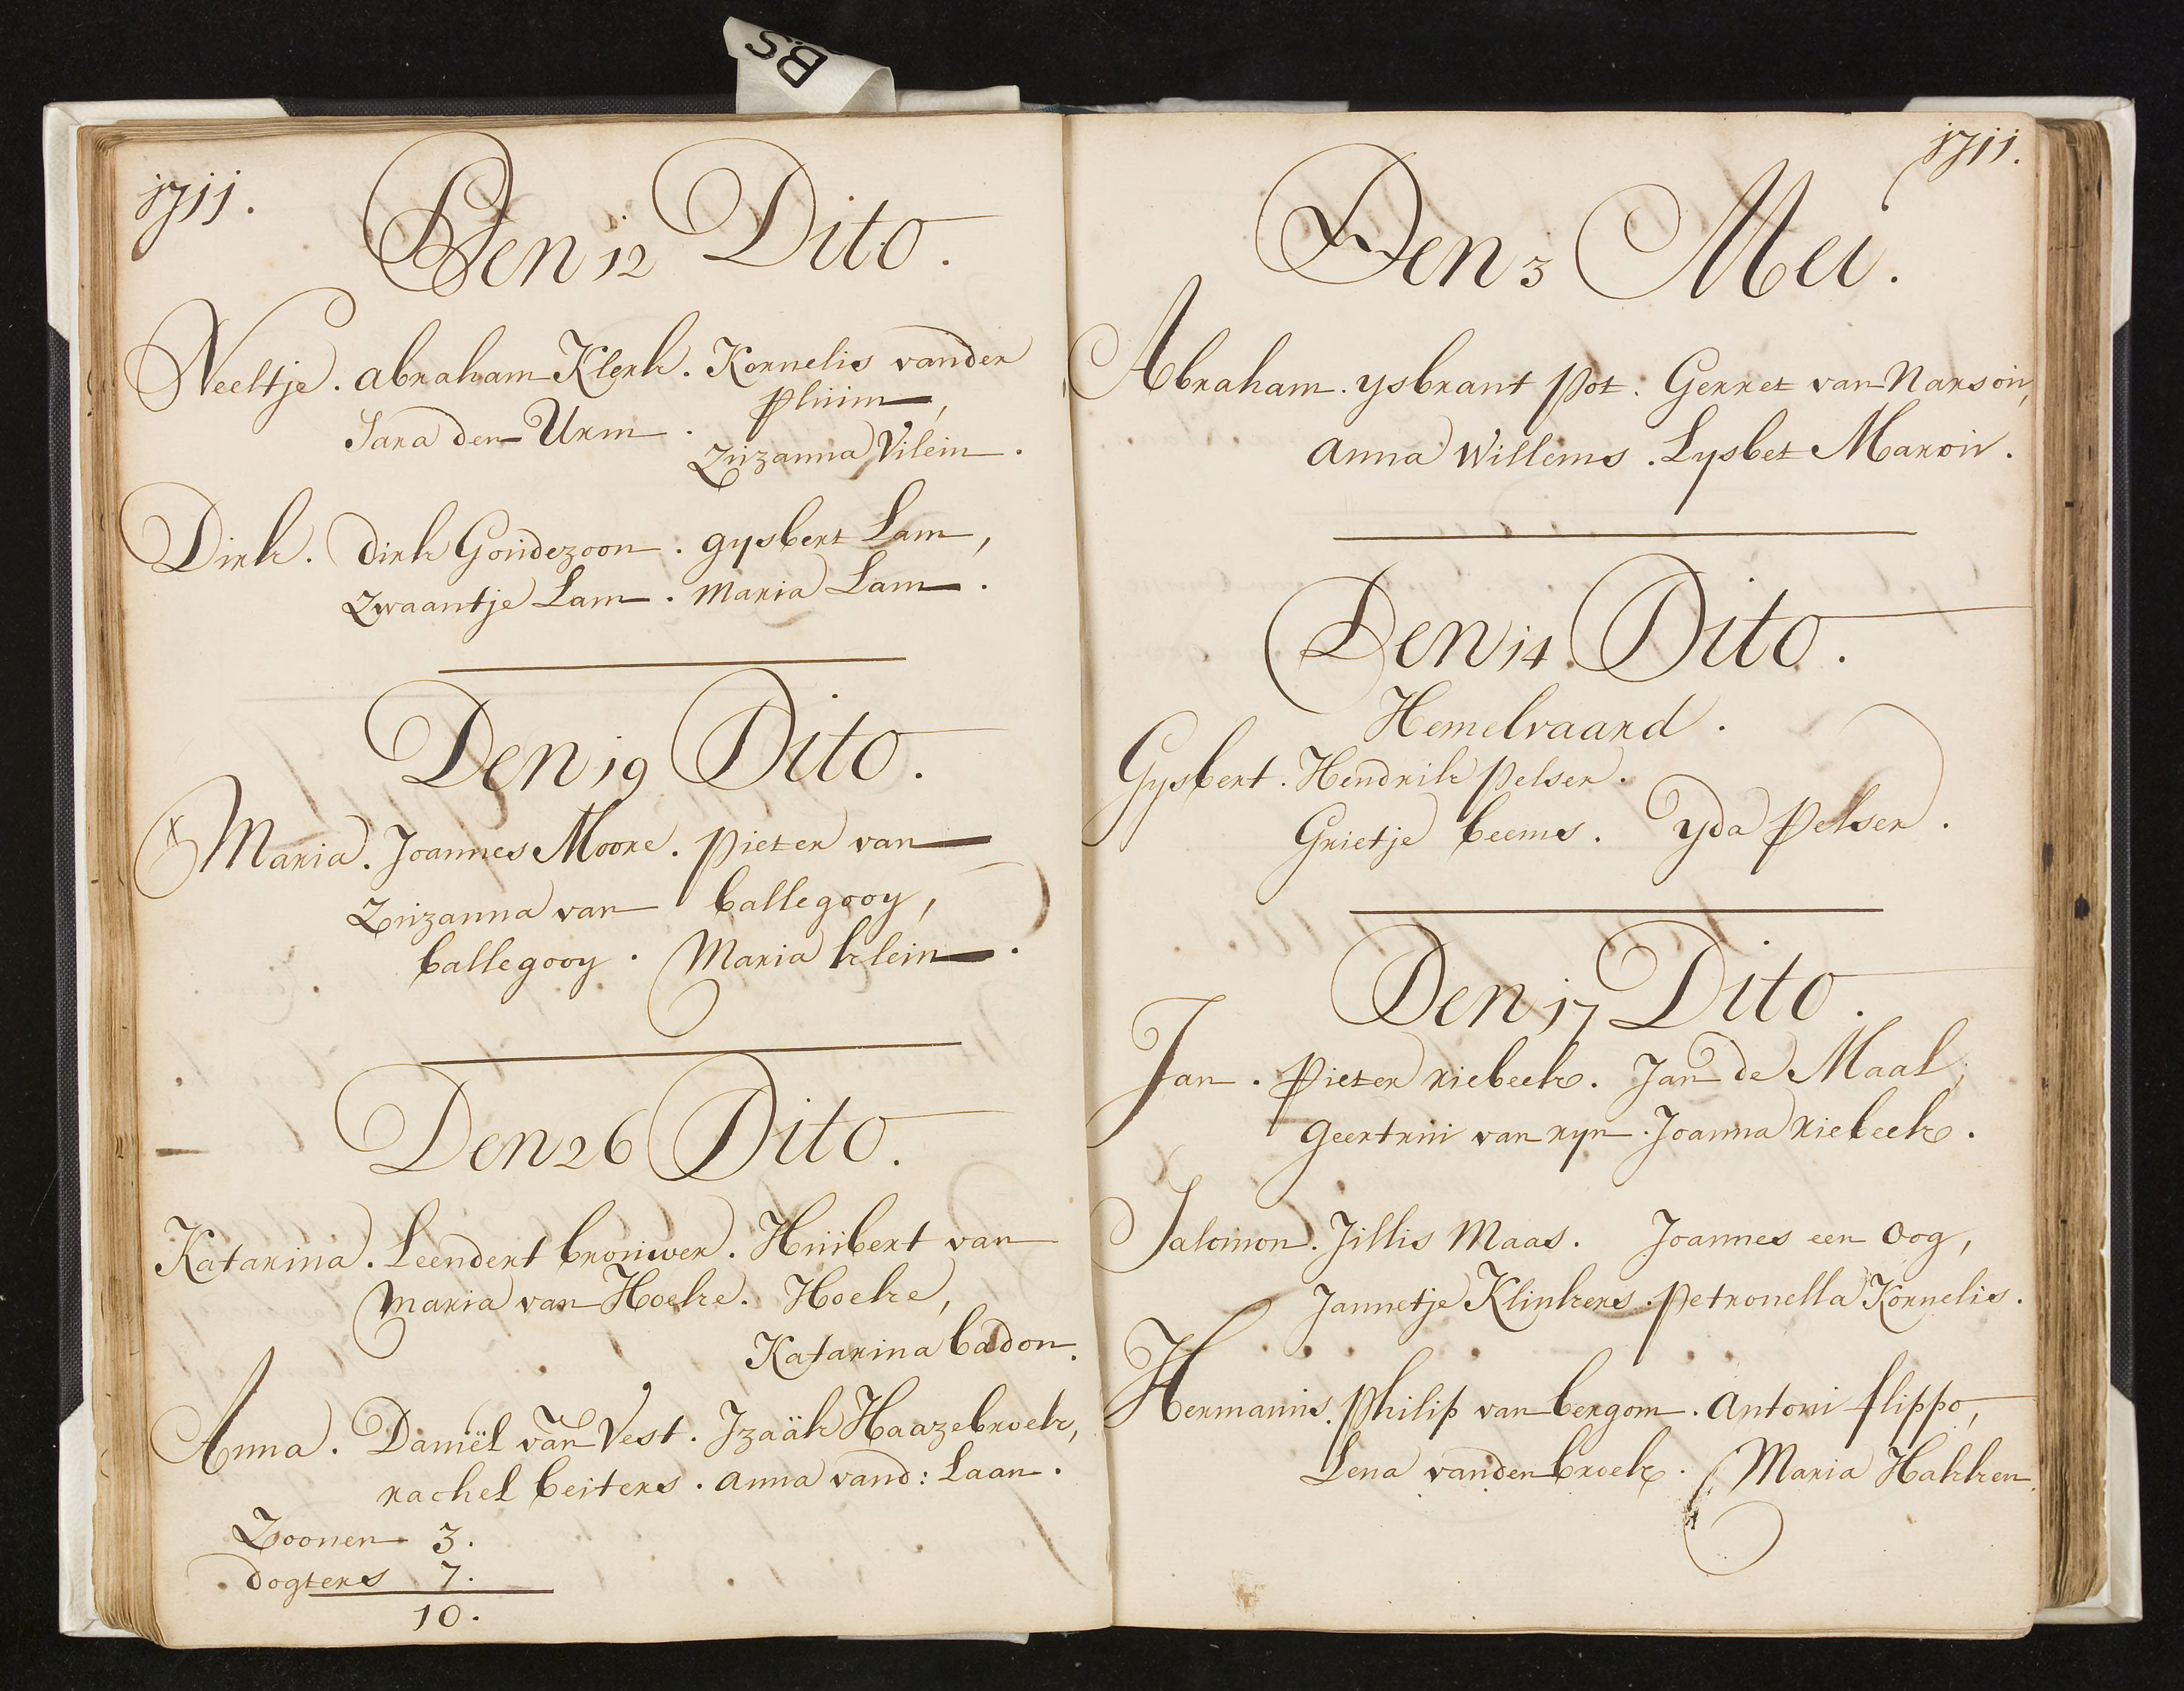 BS
1711.
Den 12 Dito.
Neeltje. Abraham Klerk. Kornelis vander
Pluim,
Sara den Urm.
Zuzanna Vilein.
Dirk. Dirk Goudezoon. Gysbert Lam,
Zwaantje Lam. Maria Lam.
Den 19 Dito.
Maria. Joannes Moore. Pieter van
Zuzanna van Ballegooy,
Ballegooy. Maria Klein.
Den 26 Dito.
Katarina. Leendert Brouwer. Huibert van
Maria van Hoeke. Hoeke,
Katarina Badon.
Anna. Daniël van Vest. Izaäk Haazebroek,
Rachel Beiters. Anna vand: Laan.
Zoonen 3.
Dogters 7.
10.
1711.
Den 3 Mei.
Abraham. Ysbrant Pot. Gerret van Narson,
Anna Willems. Lysbet
Den 14 Dito.
Hemelvaard.
Gysbert. Hendrik Pelser.
Grietje Beems. Yda Pelser.
Den 17 Dito.
Jan. Pieter Riebeek. Jan de Maal,
Geertrui van Ryn. Joanna Riebeek.
Salomon. Jillis Maas. Joannes een Oog,
Jannetje Klinkers. Petronella Kornelis.
Hermanus. Philip van Bergom. Antoni Flippo,
Lena vanden Broek. Maria Hakken.